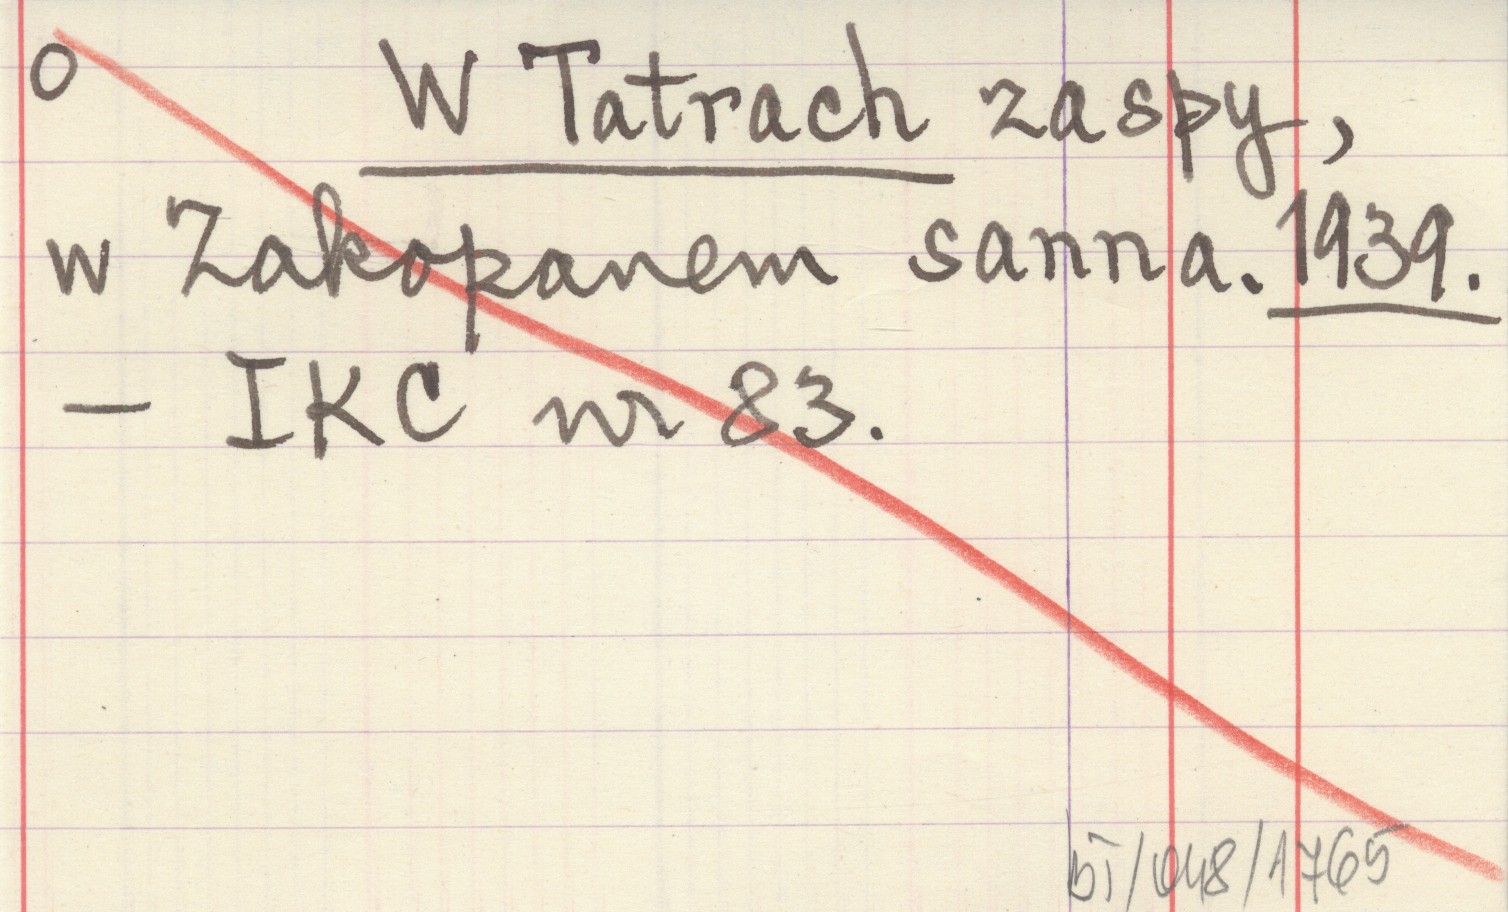 O W Tatrach zaspy,
w Zakopanem sanna. 1939.
— IKC nr 83.
BT/048/1765